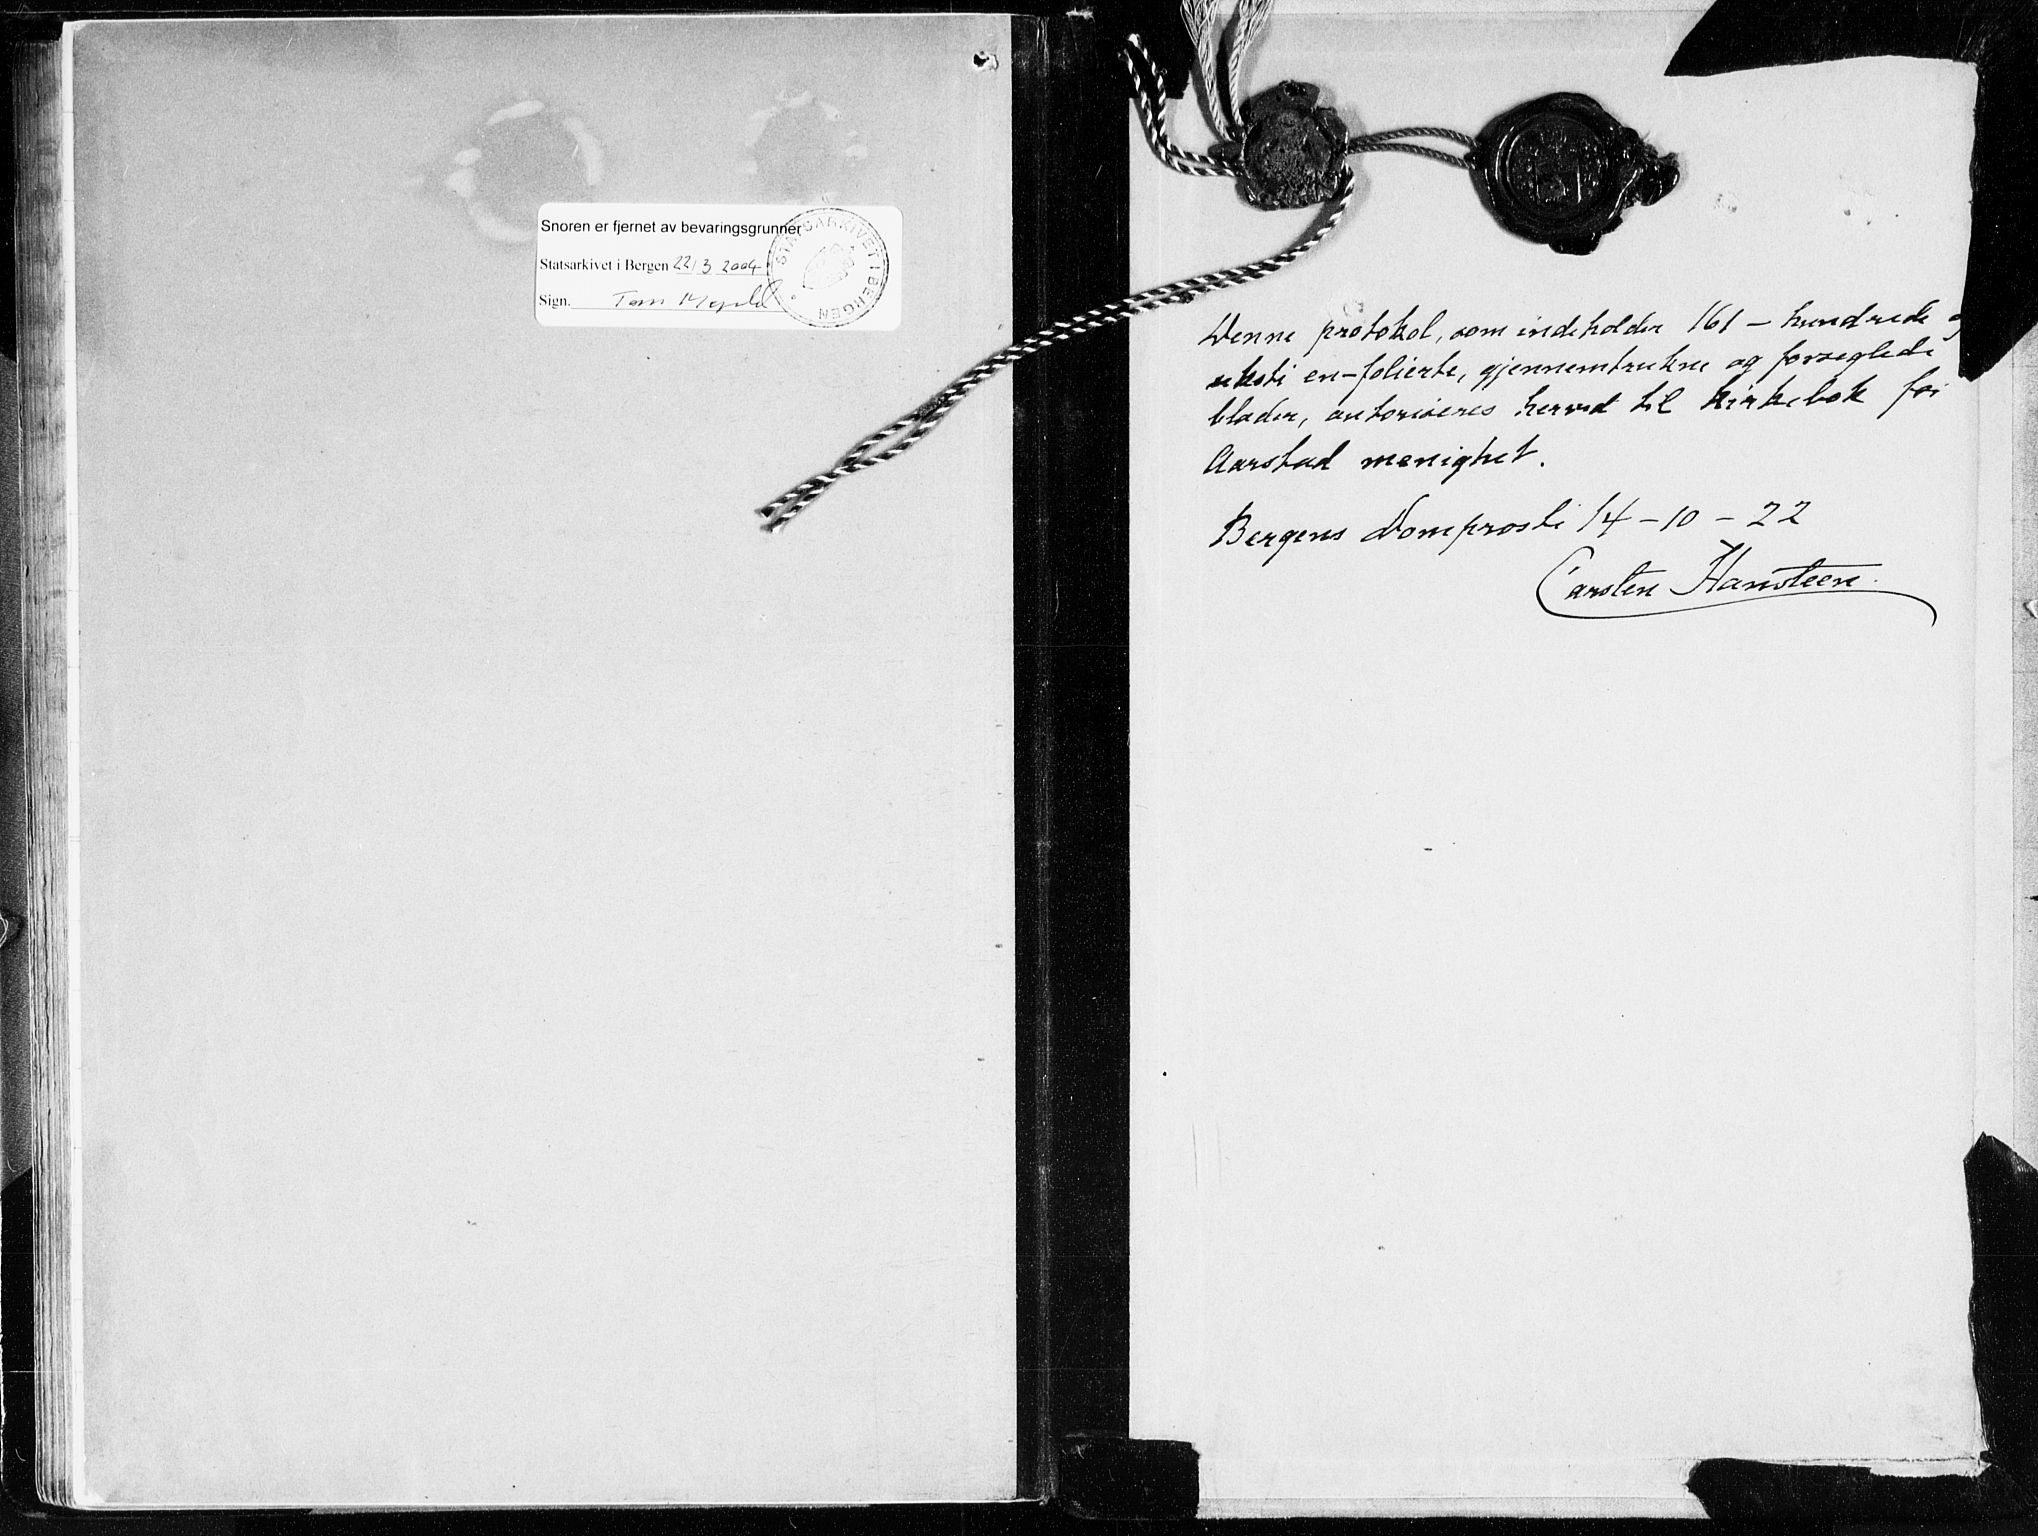 Snoren er fjernet av bevaringsgrunner
Statsarkivet i Bergen 22/3 2004
Sign. Tom
STATSARKIVET I BERGEN
Denne protokol, som indeholder 161 – hundrede og
seksti en – folierte, gjennemtrukne og forseglede
blader, autoriseres herved til kirkebok for
Aarstad menighet.
Bergens Domprosti 14 – 10 – 22
Carsten Hansteen.